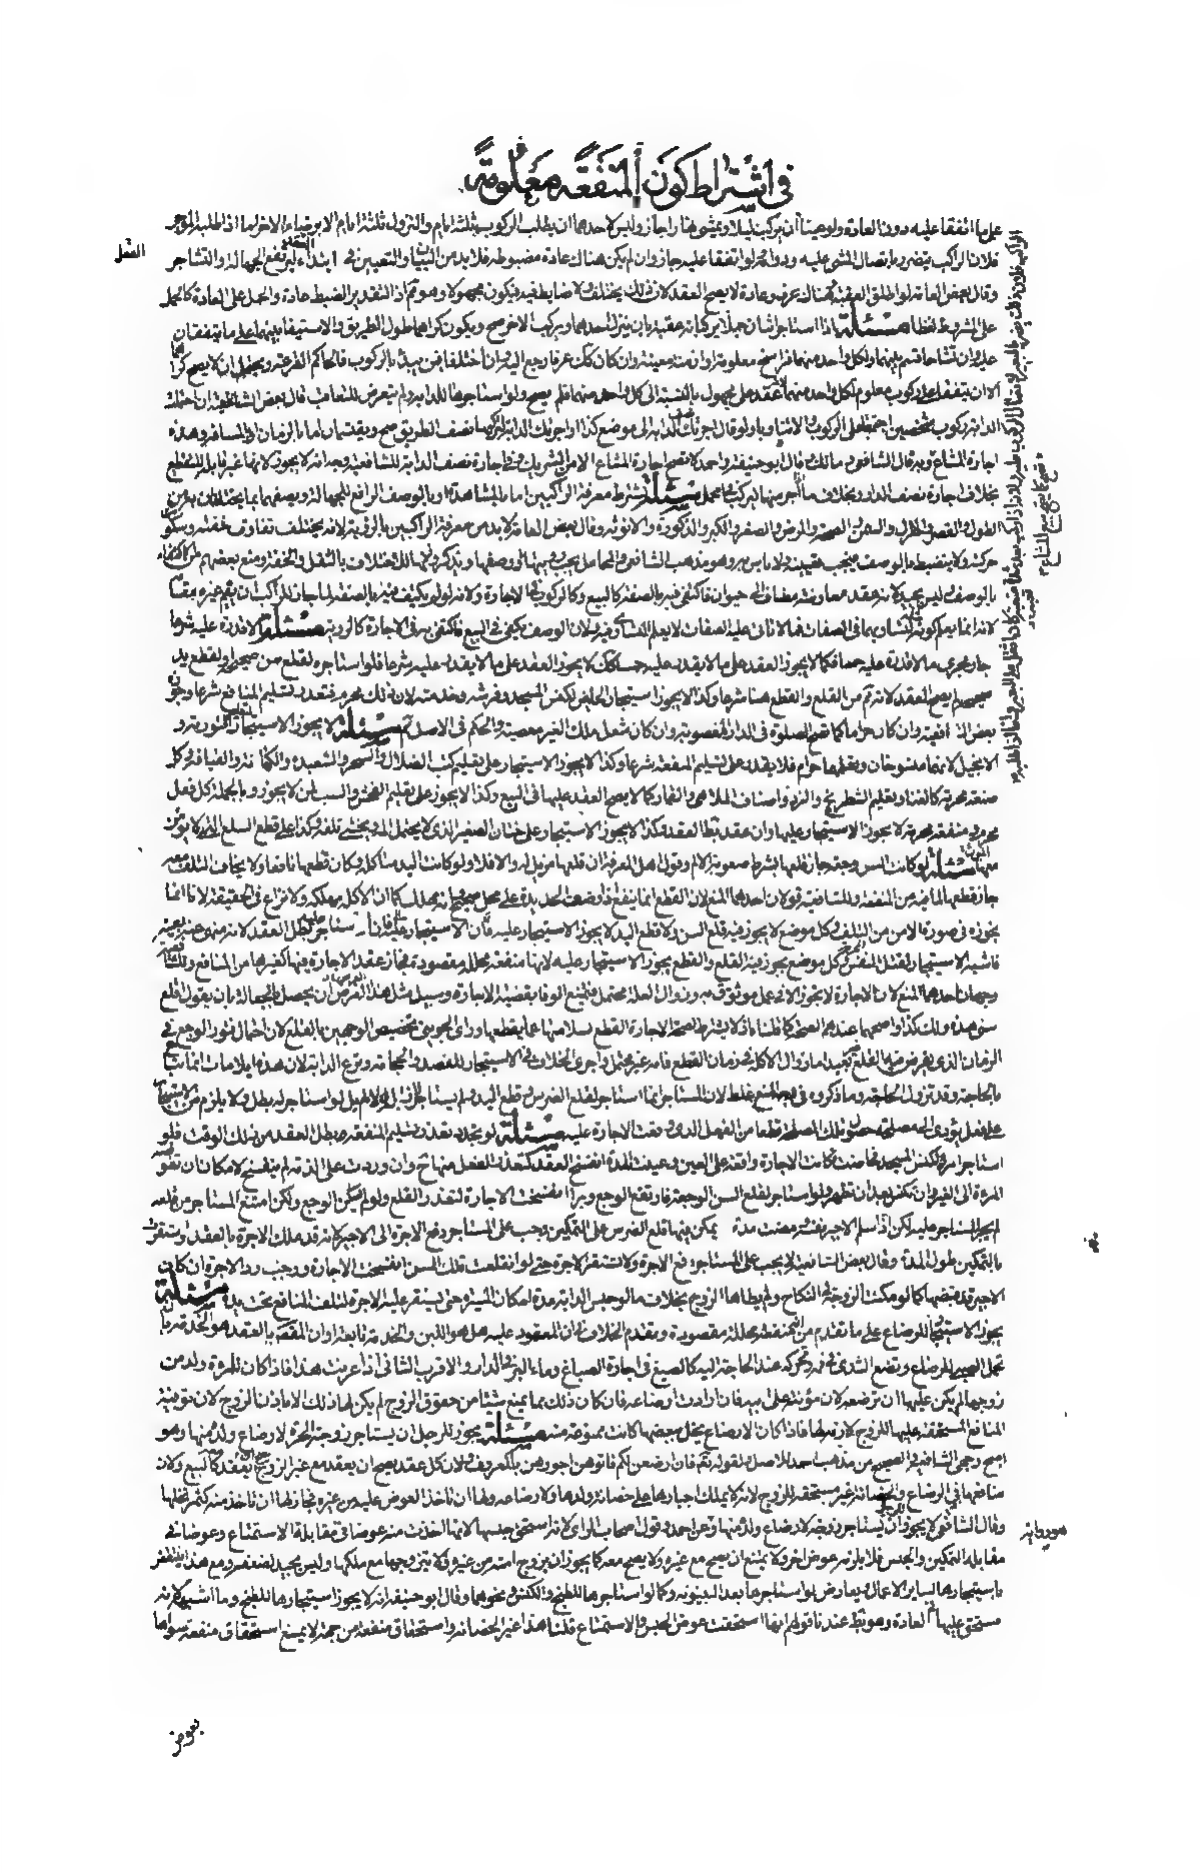 في اشتراط كون المنفعة معلومة
على ما اتفقا عليه دون العادة ولو عينا ان يركب ليلا ويمشى نهارا جاز وليس لاحدهما ان يطلب الركوب ثلثة ايام والنزول ثلثة ايام الا برضاء الاخر اما اذا طلبه الموجر
فلان الراكب يتضرر باتصال المشى عليه ولو اتفقا عليه جاز وان لم يكن هناك عادة مضبوطة فلا بد من البيان والتعيين في ابتداء ليرتفع الجهالة والتشاجر
وقال بعض العامة لو اطلق العقبة وهناك عرف وعادة لا يصح العقد لان ذلك يختلف ولا ضابط فيه فيكون مجهولا وهو تم اذ التقدير الضبط عادة والحمل على العادة كالحمل
على الشروط لفظا مسئلة اذا استاجر اثنان جملا يركبانه عقبة بان ينزل احدهما ويركب الاخر صح ويكون كراهما طول الطريق والاستيفاء بينهما على ما يتفقان
عليه وان تشاحا قسم بينهما ولكل واحد منهما فراسخ معلومة او ازمنة معينة وان كان لك عرف رجع اليه وان اختلفا فمن يبدأ بالركوب فالحاكم القرعة ويحتمل ان لا يصح كراهما
الا ان يتفقا على ركوب معلوم لكل واحد منهما لانه عقد على مجهول بالنسبة الى كل واحد منهما فلم يصح ولو استاجرها للدابة ولم يتعرض للتعاقب قال بعض الشافعية ان احتملت
الدابة ركوب شخصين اجتمعا على الركوب والا تناوبا ولو قال اجرتك نصف الدابة الى موضع كذا او اجرتك الدابة لتركبها نصف الطريق صح ويقتسمان اما بالزمان او المسافة وهذه
اجارة المشاع وبه قال الشافعي ومالك وقال ابو حنيفة واحمد لا تصح اجارة المشاع الا من الشريك وفي اجارة نصف الدابة للشافعية وجه انه لا يجوز لانها غير قابلة للتقطع
بخلاف اجارة نصف الدار وبخلاف ما اذا اجر منهما ليركبا في محمل مسئلة يشترط معرفة الراكبين اما بالمشاهدة او بالوصف الرافع للجهالة ويصفهما بما يختلفان به من
الطول والقصر والهزال والسمن والصحة والمرض والصغر والكبر والذكورة والانوثة وقال بعض العامة لا بد من معرفة الراكبين بالرؤية لانه يختلف تفاوت خفته وسكونه
حركته ولا ينضبط بالوصف فيجب تعيينه ولا باس به وهو مذهب الشافعي والمحامل يجب رؤيتها او وصفها وتذكر وزنها لاختلاف بالثقل والخفة ومنع بعضهم من الاكتفاء
بالوصف وليس بجيد لانه عقد معاوضة مضاف الى حيوان فاكتفى فيه بالصفة كالبيع وكالركوب في الاجارة ولانه لو لم يكتف فيه بالصفة لما جاز للراكب ان يقيم غيره مقامه
لانه انما يعلم كونه لتساويهما في الصفات فما لا تاتى عليه الصفات لا يعلم التساوى فيه ولان الوصف يكتفى في البيع فاكتفى به في الاجارة كالرؤية مسئلة لا قدرة عليه شرعا
جار مجرى ما لا قدرة عليه حسا فكما لا يجوز العقد على ما لا يقدر عليه حسا كذلك لا يجوز العقد على ما لا يقدر عليه شرعا فلو استاجره لقلع سن صحيحة او لقطع يد
صحيحة لم يصح العقد لانه تم من القلع والقطع هنا شرعا وكذا لا يجوز استيجار الحائض لكنس المسجد وفرشه وخدمته لان ذلك محرم فتعذر تسليم المنافع شرعا وجوز
بعض الشافعية وان كان حراما كما تصح الصلوة في الدار المغصوبة وان كان شغل ملك الغير معصية والحكم في الاصل تم مسئلة لا يجوز الاستيجار لتعليم التورية و
الانجيل لانهما منسوخان وتعلمهما حرام فلا يقدر على تسليم المنفعة شرعا وكذا لا يجوز الاستيجار على تعليم كتب الضلال والسحر والشعبدة والكهانة والقيافة وكل
صنعة محرمة كالغناء وتعليم الشطرنج والنرد واصناف الملاهى والقمار وكما لا يصح العقد عليها في البيع وكذا لا يجوز على تعليم الفحش والسب لمن لا يجوز وبالجملة كل فعل
محرم ومنفعة محرمة لا يجوز الاستيجار عليها وان عقد بطل العقد وكذا لا يجوز الاستيجار على ختان الصغير الذى لا يحتمل المه ويخشى تلفه وكذا على قطع السلع التى لا يؤمن
منها التلف مسئلة لو كانت السن وجعة جاز قلعها بشرط صعوبة الالم وقول اهل المعرفة ان قلعها مزيل له والا فلا ولو كانت اليد متاكلة وكان قطعها نافعا ولا يخاف التلف معه
جاز قطعها لما فيه من المنفعة وللشافعية قولان احدهما المنع لان القطع انما ينفع اذا وضعت الحديدة على محل صحيح وانه مهلك كما ان الاكلة مهلكة ولا نزاع في الحقيقة لانا انما
يجوزه في صورة الامن من التلف وكل موضع لا يجوز فيه قلع السن او قطع اليد لا يجوز الاستيجار عليه فان استاجر عليه بطل العقد لانه منهى عنه
فاشبه الاستيجار لقتل النفس وكل موضع يجوز فيه القلع والقطع يجوز الاستيجار عليه لانها منفعة محللة مقصودة فجاز عقد الاجارة فيها كغيرها من المنافع وللشافعية
وجهان احدهما المنع لان الاجارة لا تجوز الا في عمل موثوق به وزوال العلة محتمل فيمنع الوفاء بقضية الاجارة وسبيل مثل هذا الغرض ان يحصل بالجعالة بان يقول اقلع
سنى هذه ولك كذا واصحهما عندهم الصحة كما قلناه اذ لا يشترط لصحة الاجارة القطع بسلامتها عما يقطعها وراى الجوينى تخصيص الوجهين بالقلع لان احتمال فتور الوجع في
الزمان الذى يفرض فيه القلع غير بعيد اما زوال الاكلة في زمان القطع فانه غير محتمل واجرى الخلاف في الاستيجار للفصد والحجامة وبزغ الدابة لان هذه ايلامات انما تباح
بالحاجة وقد تزول الحاجة وما ذكروه في وجه المنع غلط لان المستاجر انما استاجر لقلع الضرس وقطع اليد ولم يستاجر لازالة الالم بل لو استاجر له بطل ولا يلزم من الاستيجار
على فعل يؤدى الى مصلحة حصول تلك المصلحة قطعا من الفعل الذى وقعت الاجارة عليه مسئلة لو تجدد تعذر تسليم المنفعة بطل العقد من ذلك الوقت فلو
استاجر امراة لكنس المسجد فحاضت فان كانت الاجارة واقعة على العين وعينت المدة انفسخ العقد لتعذر الفعل منها ح وان وردت على الذمة لم ينفسخ لامكان ان تفوض
المرءة الى الغير وان تكنس بعد ان تطهر ولو استاجر لقلع السن الوجعة فارتفع الوجع وبرا انفسخت الاجارة لتعذر القلع ولو لم يسكن الوجع ولكن امتنع المستاجر من قلعه
لم يجبر المستاجر عليه لكن اذا سلم الاجير نفسه ومضت مدة يمكن فيها قلع الضرس على التمكين وجب على المستاجر دفع الاجرة الى الاجير لانه قد ملك الاجرة بالعقد واستقرت
بالتمكين طول المدة وقال بعض الشافعية لا يجب على المستاجر دفع الاجرة ولا تستقر الاجرة حتى لو انقلعت تلك السن انفسخت الاجارة ووجب رد الاجرة ان كان
الاجير قد قبضها كما لو مكنت الزوجة في النكاح ولم يطاها الزوج بخلاف ما لو حبس الدابة مدة امكان المسير حتى يستقر عليه الاجرة لتلف المنافع تحت يده مسئلة
يجوز الاستيجار للرضاع على ما تقدم من انه منفعة محللة مقصودة وتقدم الخلاف في ان المعقود عليه هل هو اللبن والخدمة تابعة او ان المقصود بالعقد هو الخدمة بان
تحمل الصبى للرضاع وتضع الثدى في فمه وتحركه عند الحاجة اليه كالصبغ في اجارة الصباغ وماء البئر في الدار والاقرب الثانى اذا عرفت هذا فاذا كان للمرءة ولد من
زوجها لم يكن عليها ان ترضعه لان مؤنته على ابيه فان ارادت ارضاعه فان كان ذلك مما يمنع شيئا من حقوق الزوج لم يكن لها ذلك الا باذن الزوج لان توفية
المنافع المستحقة عليها للزوج لازمة لها فاذا كان الارضاع يخل ببعضها كانت ممنوعة منه مسئلة يجوز للرجل ان يستاجر زوجته الحرة لارضاع ولده منها وهو
اصح وجهى الشافعية والصحيح من مذهب احمد للاصل ولقوله تعم فان ارضعن لكم فاتوهن اجورهن بالمعروف ولان كل عقد يصح ان يعقد مع غير الزوج يصح ان يعقد معه كالبيع ولان
منافعها في الرضاع والحضانة غير مستحقة للزوج لانه لا يملك اجبارها على حضانة ولدها ولا رضاعه ولها ان تاخذ العوض عليه من غيره فجاز لها ان تاخذ منه كثمن نخلها
وقال الشافعي لا يجوز ان يستاجر زوجته لارضاع ولده منها وعن احمد وقول اصحاب الراى لانه استحق حبسها لانها اخذت منه عوضا في مقابلة الاستمتاع وعوضا في
مقابلة التمكين والحبس فلا يلزمه عوض اخر ولا يمتنع ان يصح مع غيره ولا يصح معه كما يجوز ان يزوج امته من غيره ولا يتزوجها مع ملكها وليس بجيد لضعفه ومع هذا ينتقض
باستيجارها لساير الاعمال ويعارض بما لو استاجرها بعد البينونة وكما لو استاجرها للطبخ والكنس ونحوهما وقال ابو حنيفة انه لا يجوز استيجارها للطبخ وما اشبهه لانه
مستحق عليها في العادة وهو بط عندنا قولهم انها استحقت عوض الحبس والاستمتاع قلنا هذا غير الحضانة واستحقاق منفعة من جهة لا يمنع استحقاق منفعة سواها
بعوض